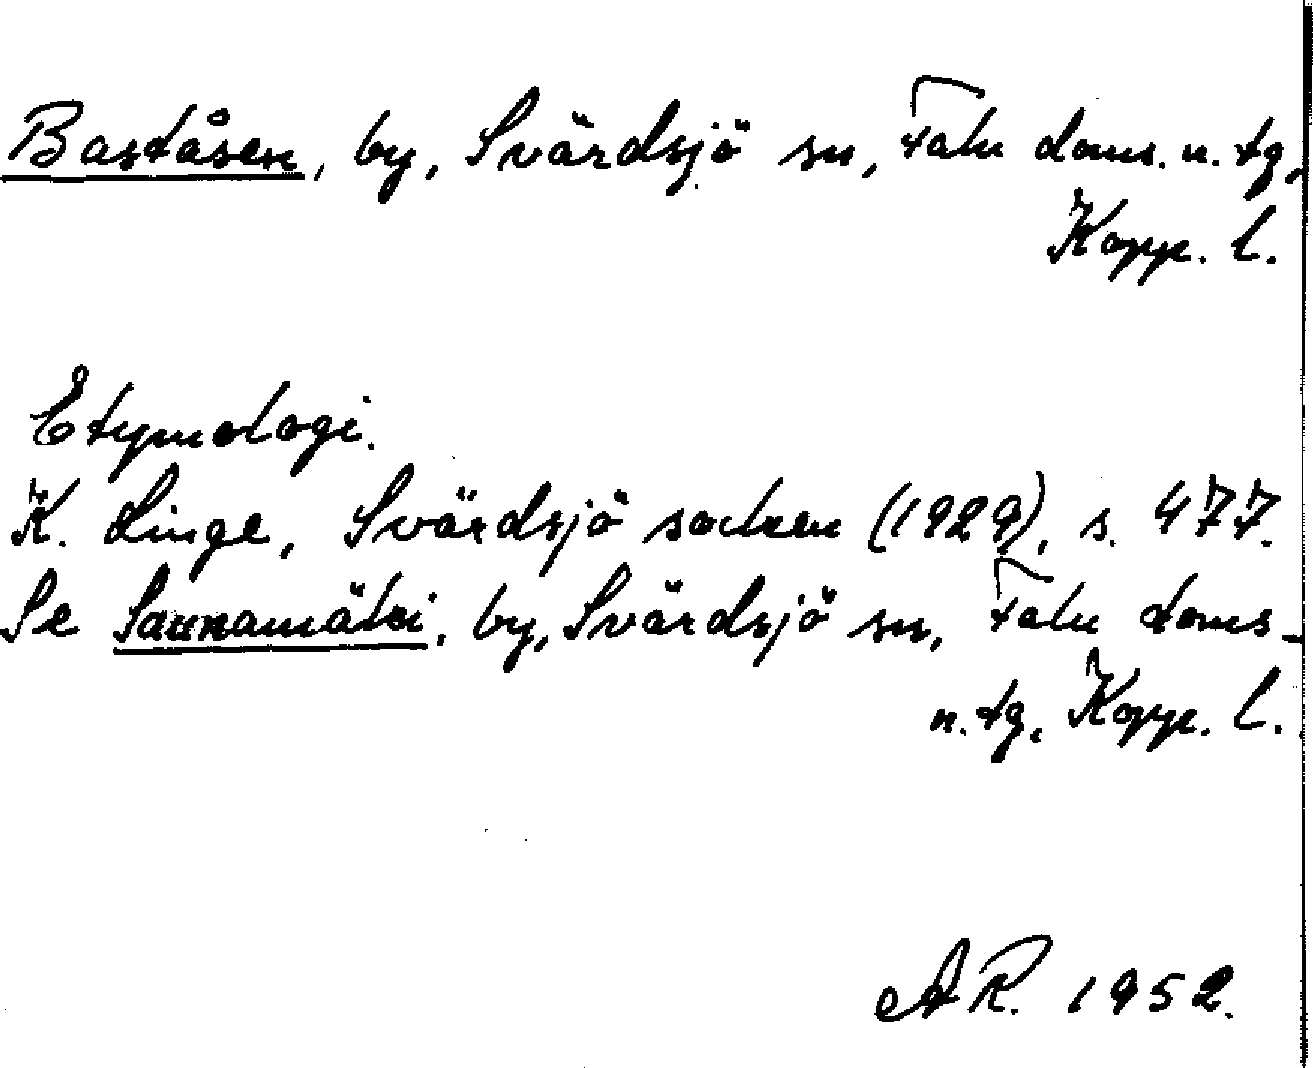 Baståsen, by, Svärdsjö sn, Falu doms. n. tg,
Kopp. l.
Etymologi.
K. Linge, Svärdsjö socken (1929), s. 477.
Se Saunamäki, by, Svärdsjö sn, Falu doms-
n. tg, Kopp. l.
AR. 1952.